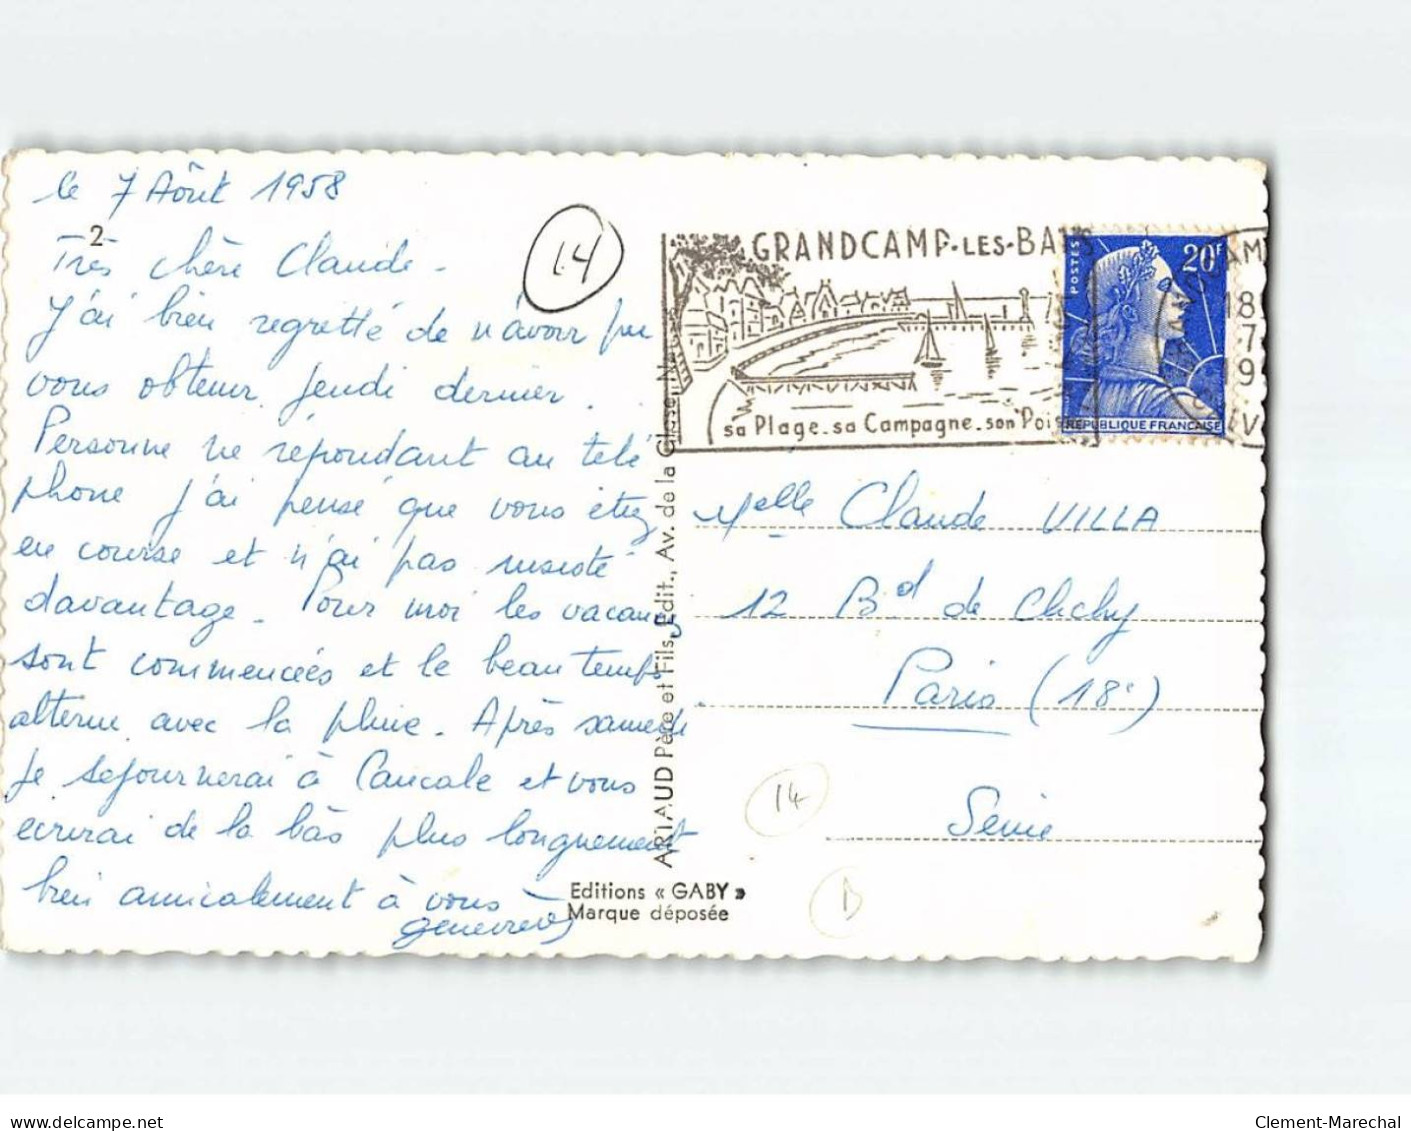 le 7 Aôut 1958
2
Très chère Claude -
J'ai bien regretté de n'avoir pu
vous obtenir jeudi dernier.
Personne ne répondant au télé
phone j'ai pensé que vous étiez
en course et n'ai pas insisté
davantage. Pour moi les vacances
sont commencées et le beau temps
alterne avec la pluie. Après samedi
je séjournerai à Cancale et vous
écrirai de la bàs plus longuement
bien amicalement à vous
Geneviève
14
GRANDCAMP-LES-BAINS
sa Plage_sa Campagne_son Poi
POSTES
20F
REPUBLIQUE FRANCAISE
18
7
19
ARTAUD Père et Fils, Edit., Av. de la Close
Melle Claude VILLA
12 Bd de Clichy
Paris (18e)
Seine
14
B
Editions « GABY »
Marque déposée
Clement-Marechal
www.delcampe.net